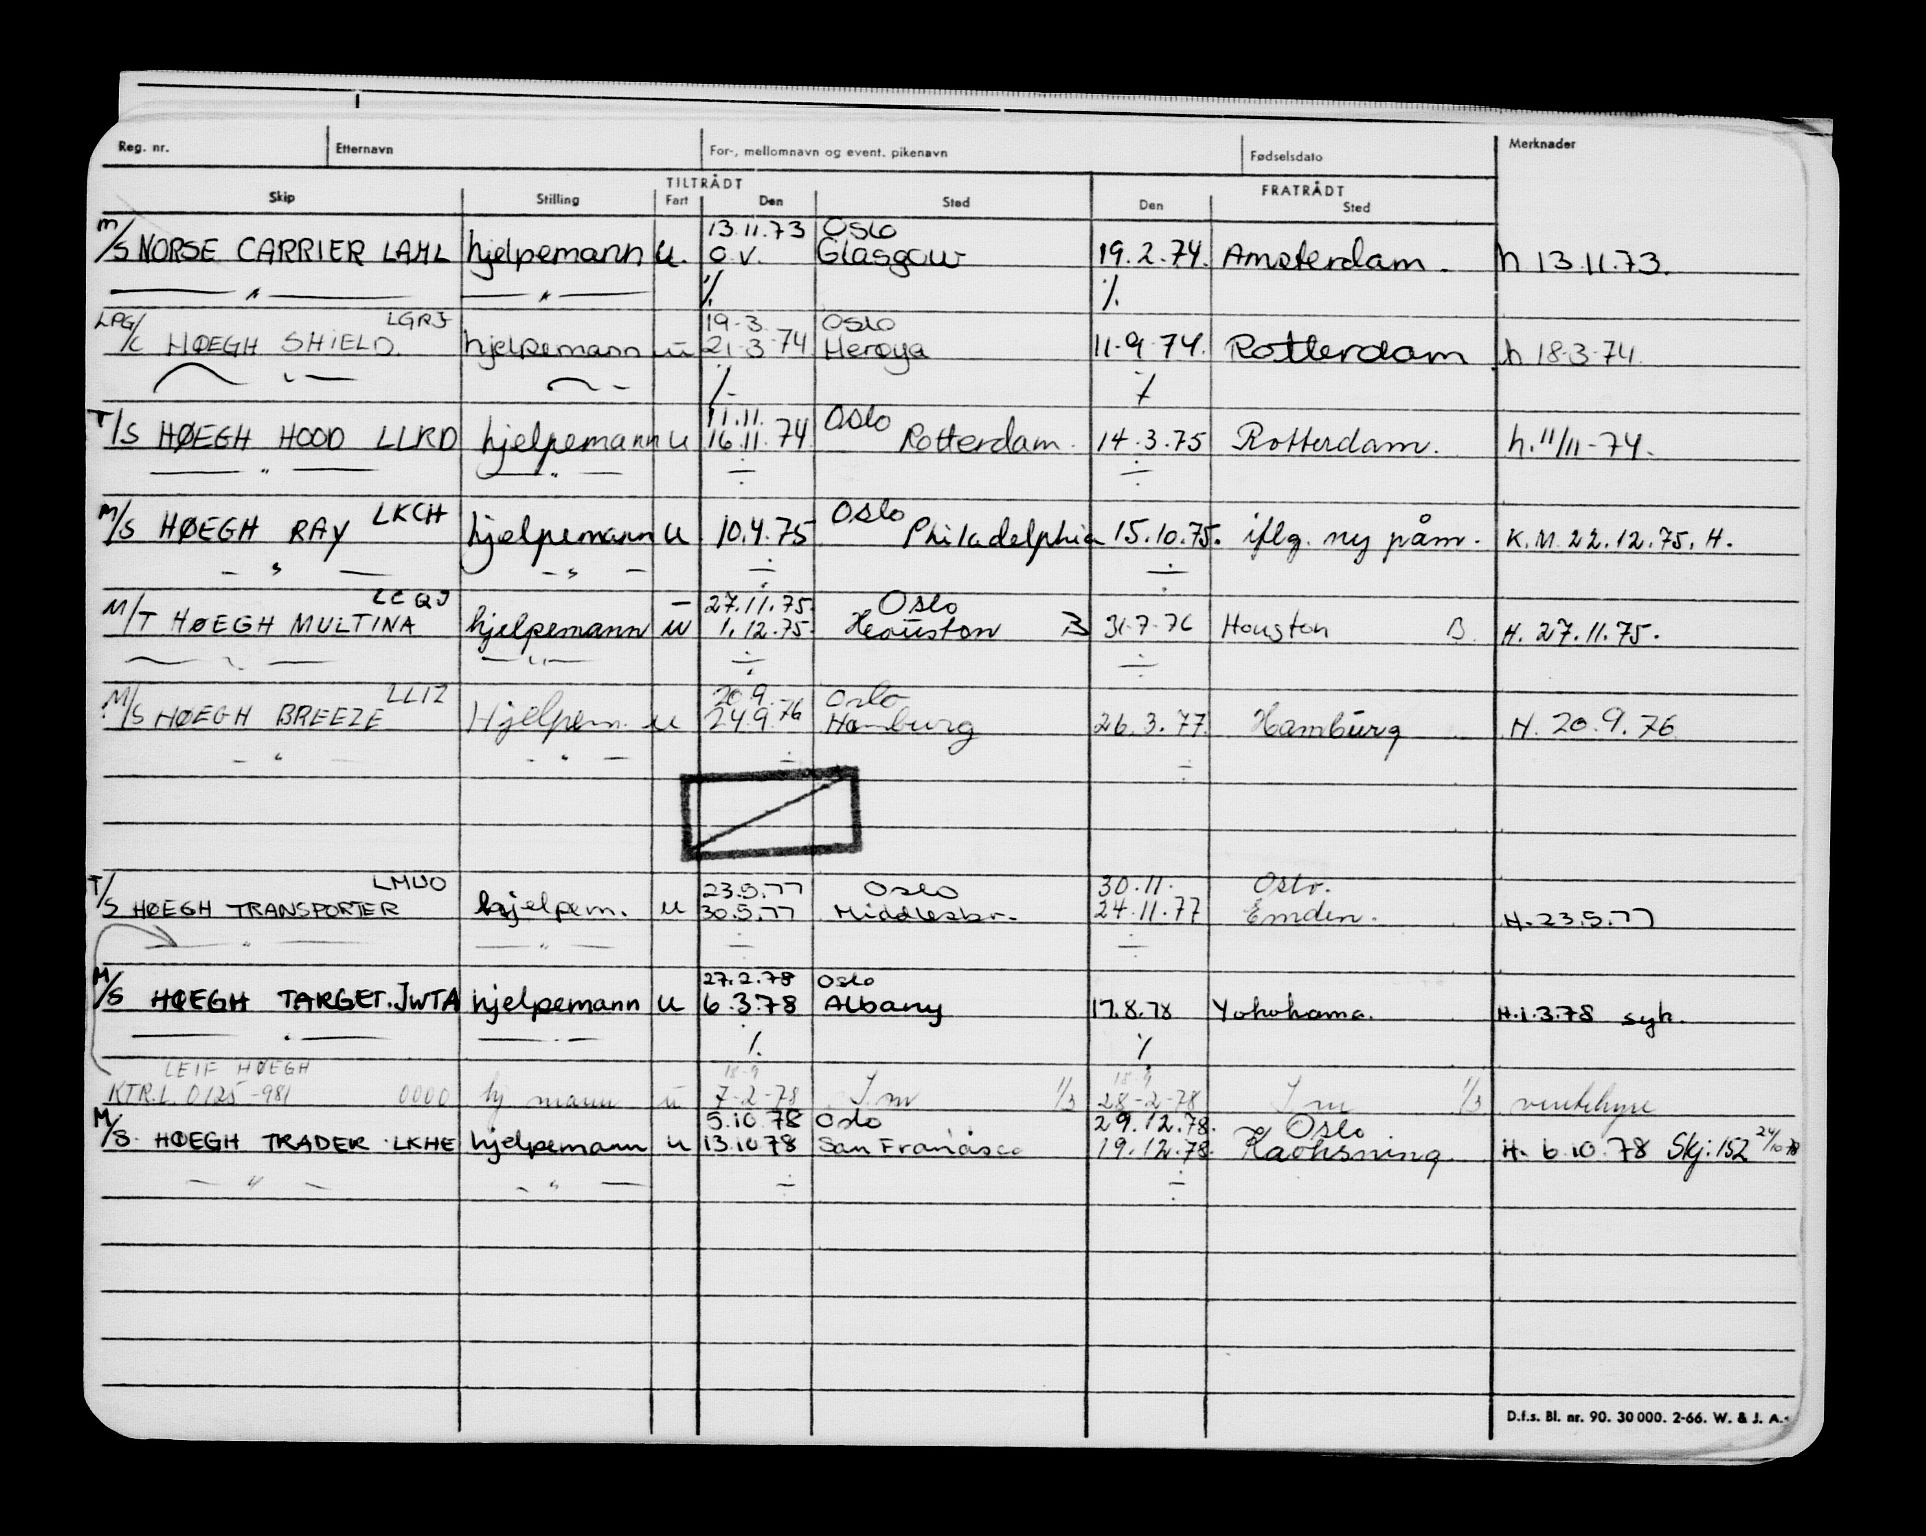 Reg. nr. Etternavn For-, mellomnavn og event. pikenavn Fødselsdato Merknader
TILTRÅDT FRATRÅDT
Skip Stilling Fart Den Sted Den Sted
13.11.73 Oslo
M/S NORSE CARRIER LAHL hjelpemann u. o.v. Glasgow 19.2.74. Amsterdam. h 13.11.73.
— " — — " — % %
LPG/C LGRJ 19-3 Oslo
HØEGH SHIELD. hjelpemann u 21-3-74 Herøya 11-9-74. Rotterdam h 18-3-74.
11.11. Oslo
T/S HØEGH HOOD LLRD hjelpemann u 16.11.74. Rotterdam. 14.3.75 Rotterdam. h. 11/11-74.
— " — — " — ÷ ÷
LKCH Oslo
M/S HØEGH RAY hjelpemann u 10.4.75 Philadelphia 15.10.75. iflg. ny påm. K.M. 22.12.75. H.
— " — — " — ÷ ÷
LEQJ — 27.11.75. Oslo
M/T HØEGH MULTINA hjelpemann u 1.12.75. Houston B 31-7-76 Houston B. H. 27.11.75.
— " — — " — ÷ ÷
LLIZ 20.9. Oslo
M/S HØEGH BREEZE Hjelpem. u 24.9.76 Hamburg 26.3.77. Hamburg H. 20.9.76
— " — — " — ÷ ÷
LMUO 23.5.77 Oslo 30.11. Oslo.
T/S HØEGH TRANSPORTER hjelpem. u 30.5.77 Middlesbr. 24.11.77 Emden. H. 23.5.77
— " — — " — ÷ ÷
27.2.78 Oslo
M/S HØEGH TARGET. JWTA hjelpemann u 6.3.78 Albany 17.8.78 Yokohama. H. 1.3.78 syk.
— " — — " — % %
LEIF HØEGH 18-9 18-9
KTR.L. 0125-981 0000 hj mann u 7-2-78 I.m 1/3 28-2-78 I m 1/3 ventehyre
5.10.78 Oslo 29.12.78. Oslo
M/S. HØEGH TRADER LKHE hjelpemann u 13.10.78 San Francisco 19.12.78. Kaohsiung H. 6.10.78 Skj: 152 24/10-78
— " — — " — ÷ ÷
D.f.s. Bl. nr. 90. 30 000. 2-66. W. & J. A.